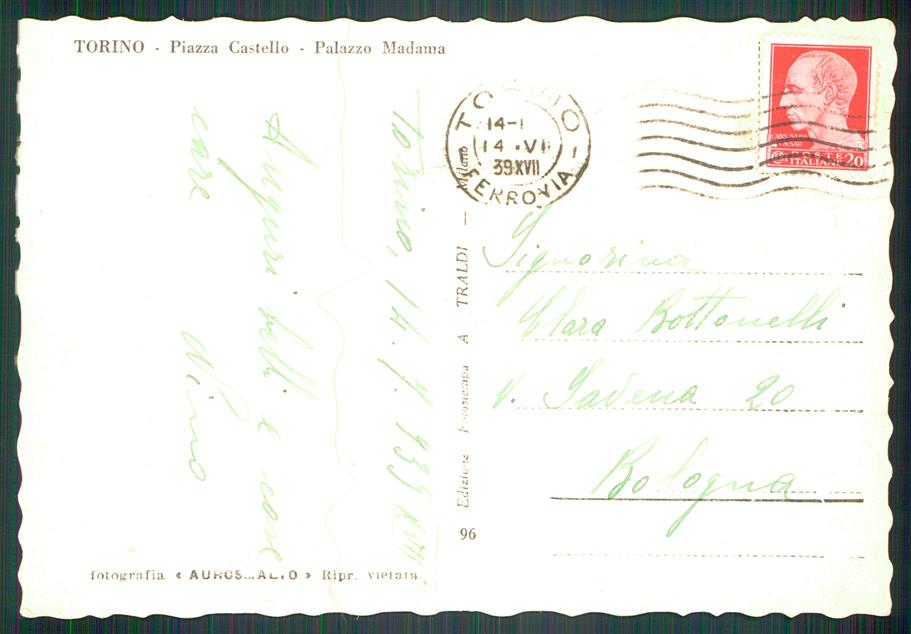 TORINO - Piazza Castello - Palazzo Madama
TORINO
14-1
14 · VI
39XVII
FERROVIA
POSTE
ITALIANE 20
Torino, 14.9.939 XVII
Auguri belli e cose
care
Nino
Signorina
Clara Bottonelli
V. Savena 20
Bologna
Edizione Fotostampa A TRALDI — Milano
96
fotografia « AUROS...ALTO » Ripr. vietata